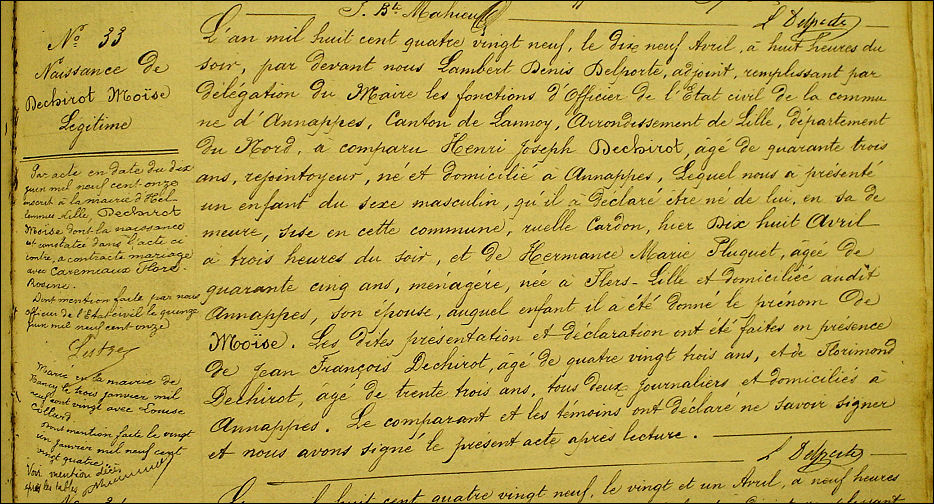 J. Bte Mahieu
L. Delporte
No 33
Naissance de
Dechirot Moïse
Légitime
Par acte en date du dix
juin mil neuf cent onze
inscrit à la mairie d'Hel-
lemmes Lille, Dechirot
Moïse dont la naissance
est constatée dans l'acte ci
contre, a contracté mariage
avec Caremeaux Flore-
Rosine.
Dont mention faite par nous
officier de l'Etat civil le quinze
juin mil neuf cent onze
Marié en la mairie de
trois janvier mil
neuf cent vingt avec Louise
Collard
Dont mention faite le vingt
un janvier mil neuf cent
vingt quatre
Voir mention
après les tables
L'an mil huit cent quatre vingt neuf, le dix neuf Avril, à huit heures du
soir, par devant nous Lambert Denis Delporte, adjoint, remplissant par
délégation du Maire les fonctions d'Officier de l'Etat civil de la commu
ne d'Annappes, Canton de Lannoy, Arrondissement de Lille, département
du Nord, a comparu Henri Joseph Dechirot, agé de quarante trois
ans, rejointoyeur, né et domicilié à Annappes, Lequel nous a présenté
un enfant du sexe masculin, qu'il a déclaré être né de lui, en sa de
meure, sise en cette commune, ruelle Cardon, hier Dix huit Avril
à trois heures du soir, et de Hermance Marie Pluquet, âgée de
quarante cinq ans, ménagère, née à Flers-Lille et domiciliée audit
Annappes, son épouse, auquel enfant il a été donné le prénom de
Moïse. Les dites présentation et déclaration ont été faites en présence
de Jean François Dechirot, âgé de quatre vingt trois ans, et de Florimond
Dechirot, âgé de trente trois ans, tous deux journaliers et domiciliés à
Annappes. Le comparant et les témoins ont déclaré ne savoir signer
et nous avons signé le présent acte après lecture.
L. Delporte
L'an mil huit cent quatre vingt neuf, le vingt et un Avril, à neuf heures